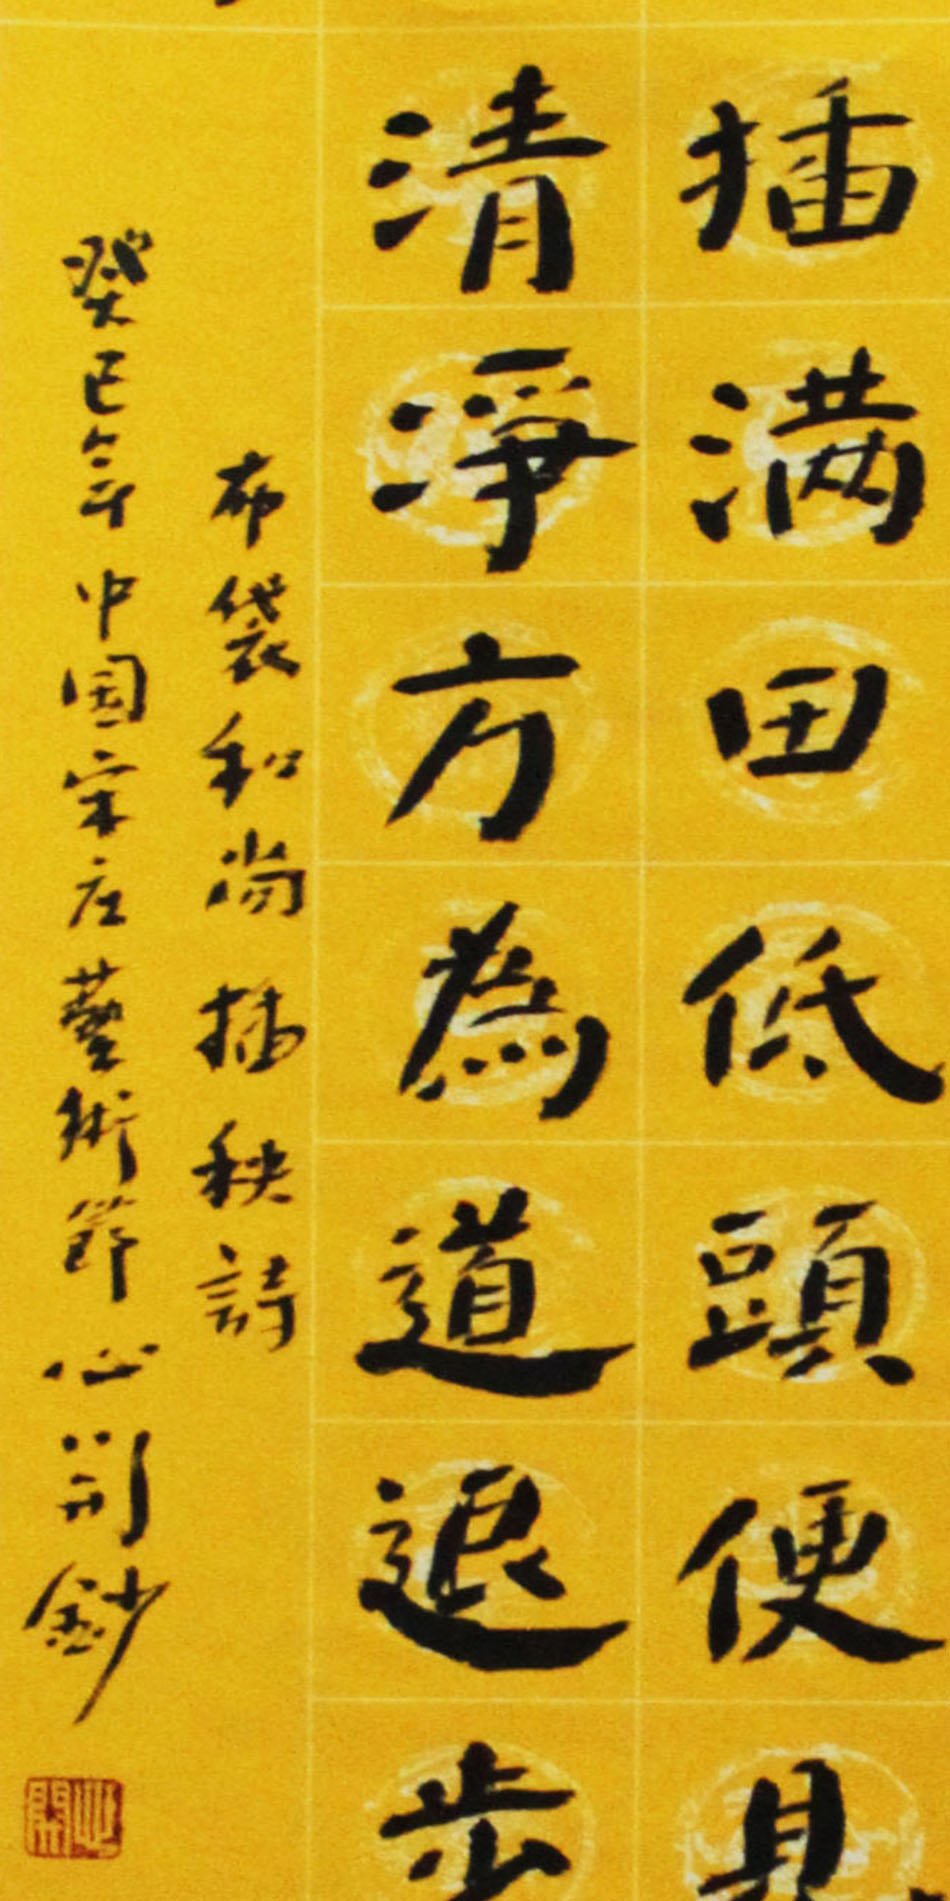 插满田低頭便見
清淨方為道退步
布袋和尚插秧詩
癸巳年中国宋庄藝術節心開鈔